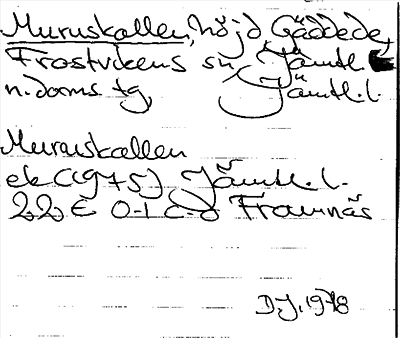 Muruskallen, höjd, Gäddede,
Frostvikens sn, Jämtl.
n. doms tg, Jämtl. l.
Muruskallen
ek (1975) Jämtl. l.
22 E 0-1 c-d Framnäs
D.J. 1978